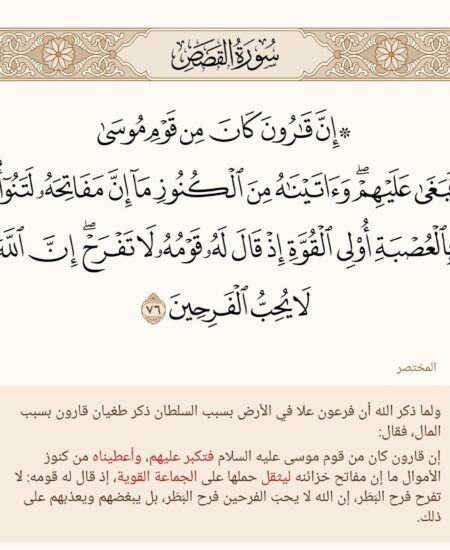 سُورَةُ القَصَصِ
۞ إِنَّ قَٰرُونَ كَانَ مِن قَوْمِ مُوسَىٰ
فَبَغَىٰ عَلَيْهِمْۖ وَءَاتَيْنَٰهُ مِنَ ٱلْكُنُوزِ مَآ إِنَّ مَفَاتِحَهُۥ لَتَنُوٓأُ
بِٱلْعُصْبَةِ أُو۟لِى ٱلْقُوَّةِ إِذْ قَالَ لَهُۥ قَوْمُهُۥ لَا تَفْرَحْۖ إِنَّ ٱللَّهَ
لَا يُحِبُّ ٱلْفَرِحِينَ ٧٦
المختصر
ولما ذكر الله أن فرعون علا في الأرض بسبب السلطان ذكر طغيان قارون بسبب
المال، فقال:
إن قارون كان من قوم موسى عليه السلام فتكبر عليهم، وأعطيناه من كنوز
الأموال ما إن مفاتح خزائنه ليثقل حملها على الجماعة القوية، إذ قال له قومه: لا
تفرح فرح البَطَر، إن الله لا يحبّ الفرحين فرح البَطَر، بل يبغضهم ويعذبهم على
ذلك.